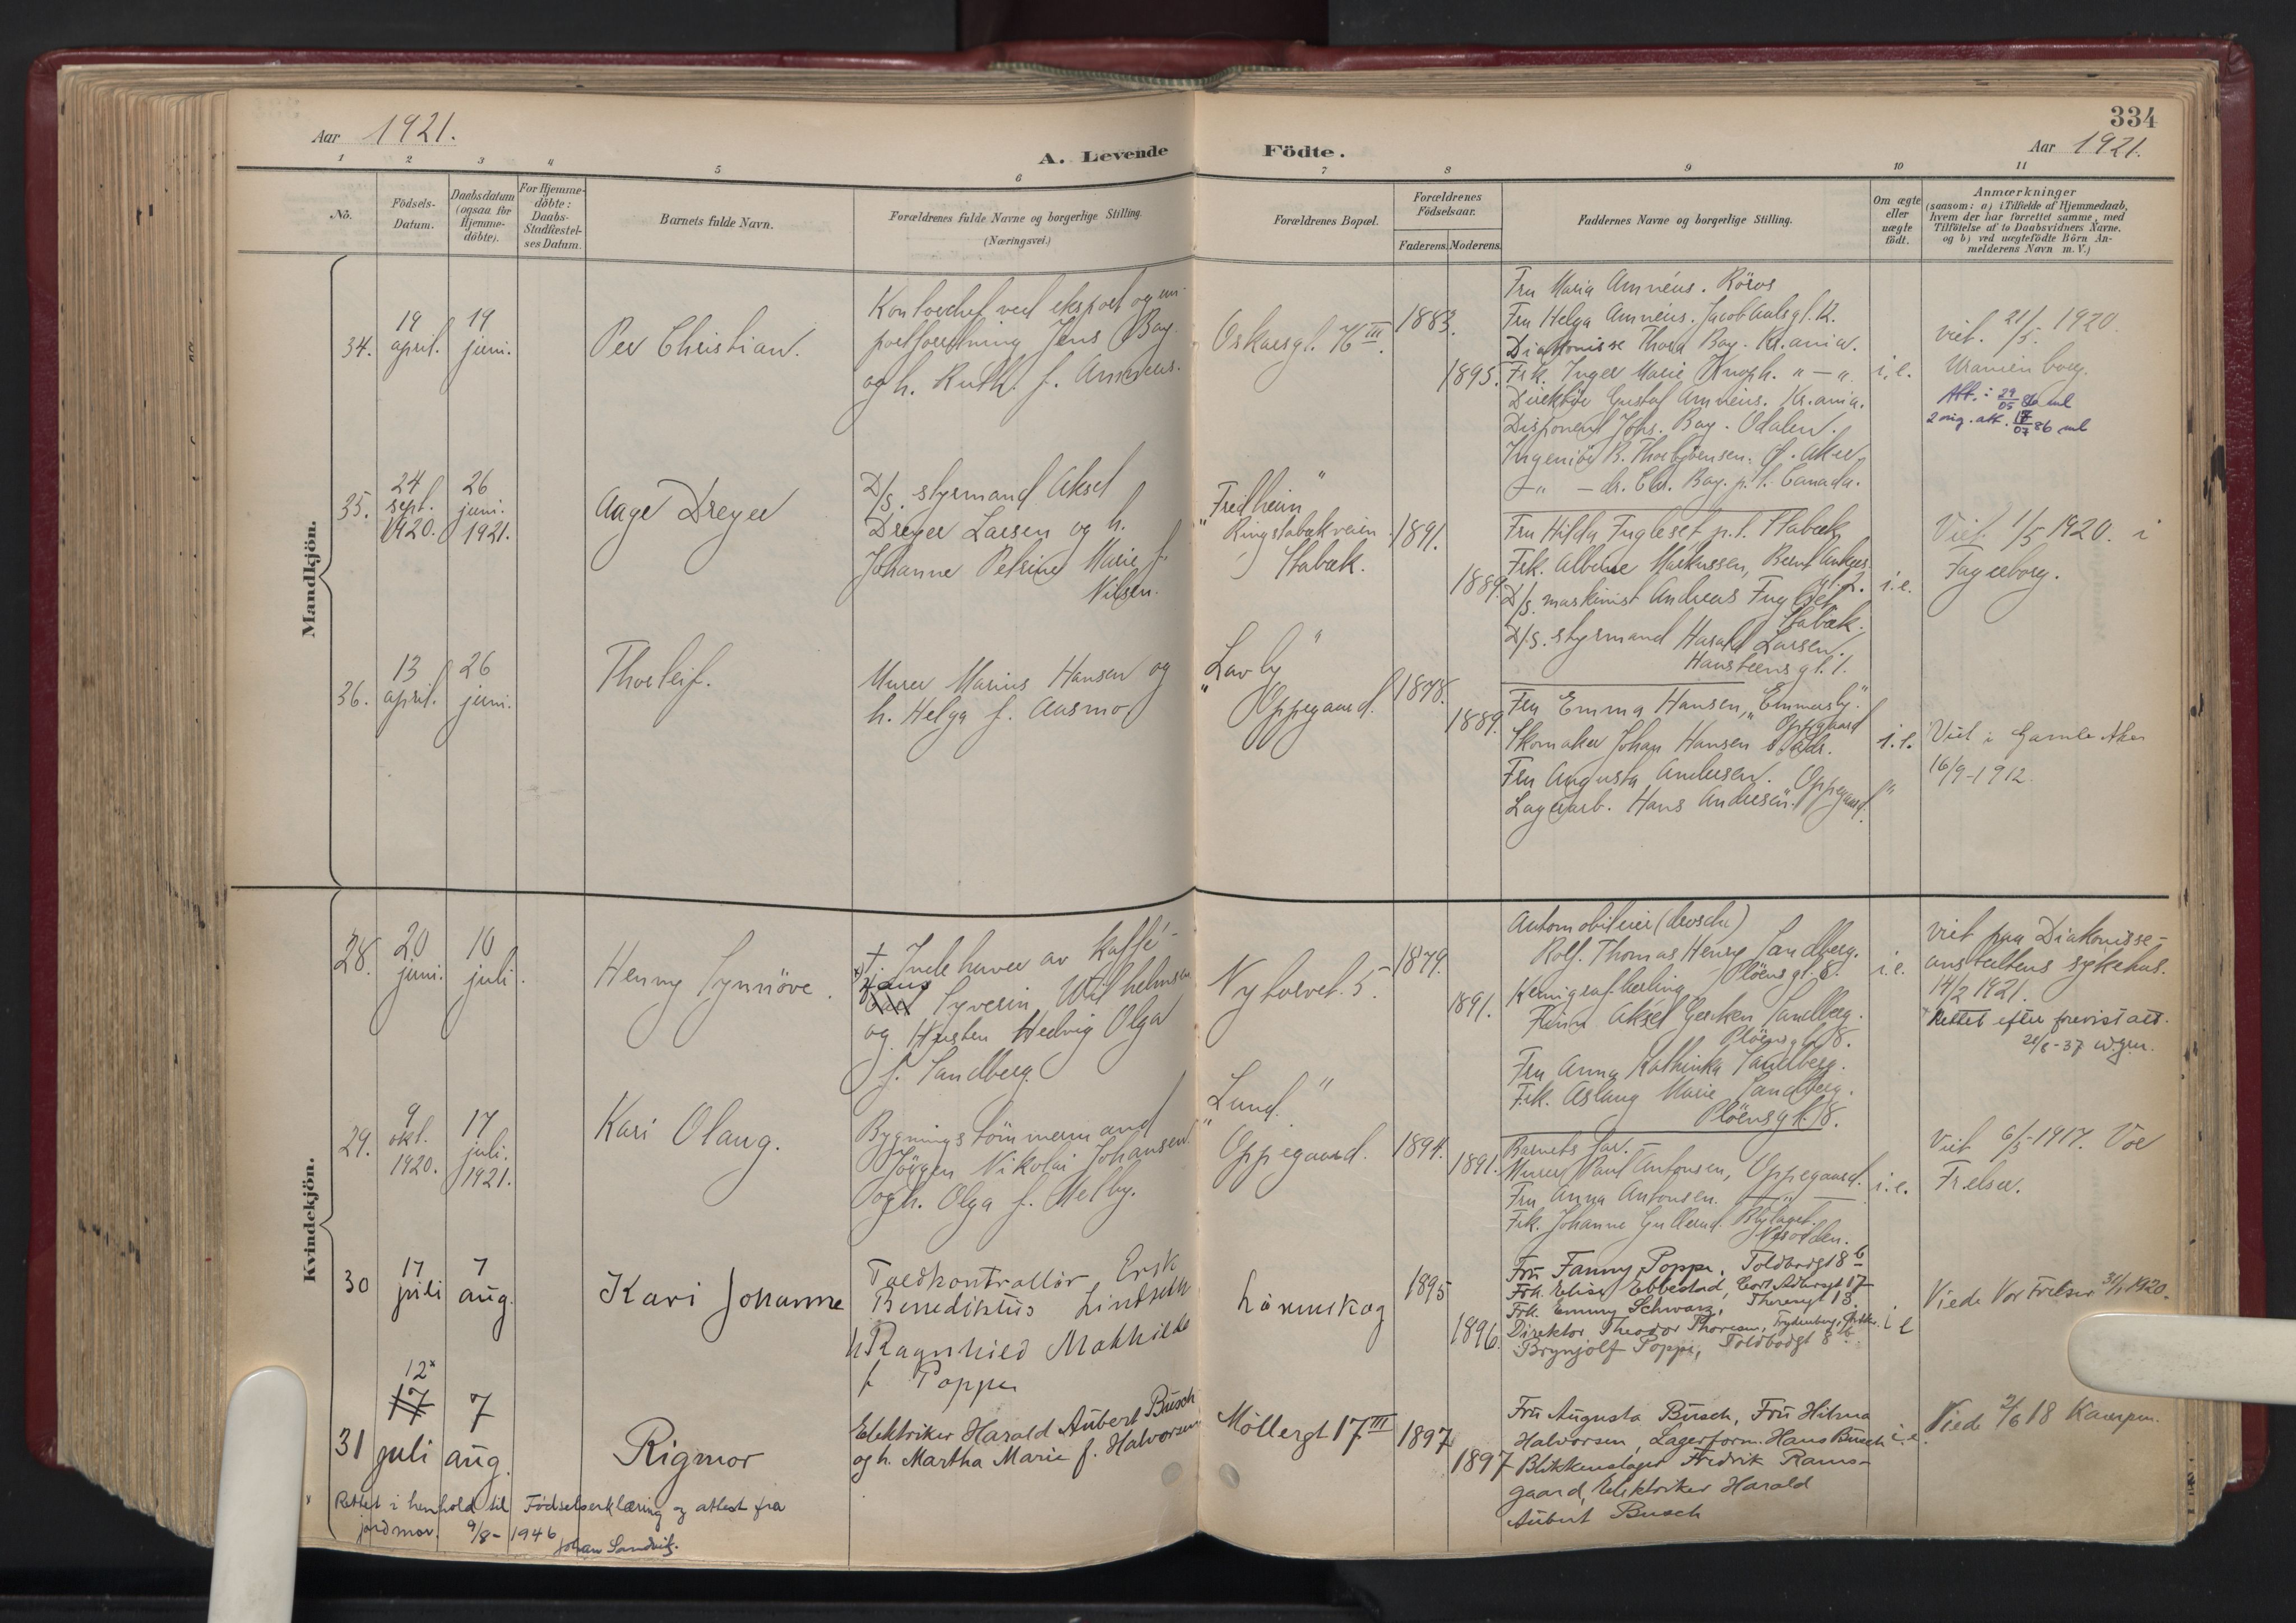 334
Aar 1921.
A. Levende Födte.
Aar 1921.
1 2 3 4 5 6 7 8 9 10 11
No.
Födsels-
Datum.
Daabsdatum
(ogsaa for
Hjemme-
döbte).
For Hjemme-
döbte:
Daabs-
Stadfæstel-
ses Datum.
Barnets fulde Navn.
Forældrenes fulde Navne og borgerlige Stilling.
(Næringsvei.)
Forældrenes Bopæl.
Forældrenes
Födselsaar.
Faderens. Moderens.
Faddernes Navne og borgerlige Stilling.
Om ægte
eller
uægte
födt.
Anmærkninger
(saasom: a) i Tilfælde af Hjemmedaab,
hvem der har forrettet samme, med
Tilföielse af to Daabsvidners Navne.
og b) ved uægtefödte Börn An-
melderens Navn m. V.)
Mandkjön.
34.
19
april.
19
juni.
Per Christian.
Kontorchef ved eksport og im-
portforretning Jens Bay.
og h. Ruth. f. Amnéus.
Oskarsgt. 76 III.
1883.
1895.
Fru Maria Amnéus. Röros
Fru Helga Amnéus. Jacob Aalsgt. 12.
Diakonisse Thora Bay. Kr.ania.
Frk. Inger Marie Knoph. " — "
Direktör Gustaf Amnéus. Kr.ania.
Disponent Johs. Bay. Odalen.
Ingeniör B. Thorbjörnsen. Ö. Aker
— " — dr. Chr. Bay. p.t. Canada.
i.e.
viet. 21/5. 1920.
Uranienborg.
Att.: 29/05 86 ml
2 mig. att. 17/07 86 ml
35.
24
sept.
1920.
26
juni.
1921.
Aage Dreyer
D/s. styrmand Aksel
Dreyer Larsen og h.
Johanne Petrine Marie f.
Nilsen.
"Fredheim"
Ringstabækveien
Stabæk.
1891.
1889.
Fru Hilda Fugleset p.t. Stabæk
Frk. Albertine Markussen, Bernt Ankers
gt. 2.
D/s. maskinist Andreas Fugleset
Stabæk.
D/s. styrmand Harald Larsen.
Hansteens gt. 1.
i.e.
Viet. 1/5 1920. i
Fagerborg.
36.
13
april.
26
juni.
Thorleif.
Murer Marius Hansen og
h. Helga f. Aasmo
"Lavly"
Oppegaard.
1878.
1889.
Fru Emma Hansen, "Emmasly".
Oppegaard
Skomaker Johan Hansen
Fru Augusta Andersen.
Lagerarb. Hans Andersen. Oppegaard.
i.e.
Viet i Gamle Aker
16/9-1912.
Kvindekjön.
28.
20
juni.
10
juli.
Henny Synnöve.
†. Indehaver av kaffé-
Syverin Wilhelmsen
og Hustru Hedvig Olga
f. Sandberg.
Nytorvet. 5.
1879.
1891.
Automobileier (drosche)
Rolf. Thomas Henry Sandberg.
Plöensgt. 8.
Kemigraf.lærling
Finn Aksel Gerken Sandberg.
Plöensgt. 8.
Fru Anna Kathinka Sandberg.
Frk. Aslaug Marie Sandberg.
Plöensgt. 8.
i.e.
viet paa Diakonisse-
anstaltens sykehus.
14/2 1921.
Rettet efter forevist att.
29.
9
okt.
1920.
17
juli.
1921.
Kari Olaug.
Bygningstömmermand
Jörgen Nikolai Johansen.
og h. Olga f. Melby.
"Lund."
Oppegaard.
1894.
1891.
Barnets far.
Murer Paul Antonsen, Oppegaard.
Fru Anna Antonsen. — " —
Frk. Johanne Gullerud.
Nesodden.
i.e.
Viet 6/5-1917. Vor
Frelser.
30
17
juli
7
aug.
Kari Johanne
Toldkontrollör Erik
Benediktus Lindseth
h Ragnhild Mathilde
f. Poppe
Lörenskog
1895
1896.
Fru Fanny Poppe, Toldbodgt 8 b
Frk. Elise Ebbestad, Carl Adlersgt 17
Frk. Emmy Schwarz, Theresesgt 13.
Direktör Theodor Thoresen,
Brynjolf Poppe, Toldbodgt 8 b.
i e
Viede Vor Frelser 1920.
31
12*
17
juli
7
aug.
Rigmor
Elektriker Harald Aubert Busch
og h. Martha Marie f. Halvorsen
Möllergt 17 III
1897
1897
Fru Augusta Busch, Fru Hilma
Halvorsen, Lagerform. Hans Busch
Blikkenslager Fredrik Rams-
gaard, Elektriker Harald
Aubert Busch
i.e.
Viede 2/6 18 Kampen.
* Rettet i henhold til Födselserklæring og attest fra
jordmor. 9/8-1946
Johan Sandvik.